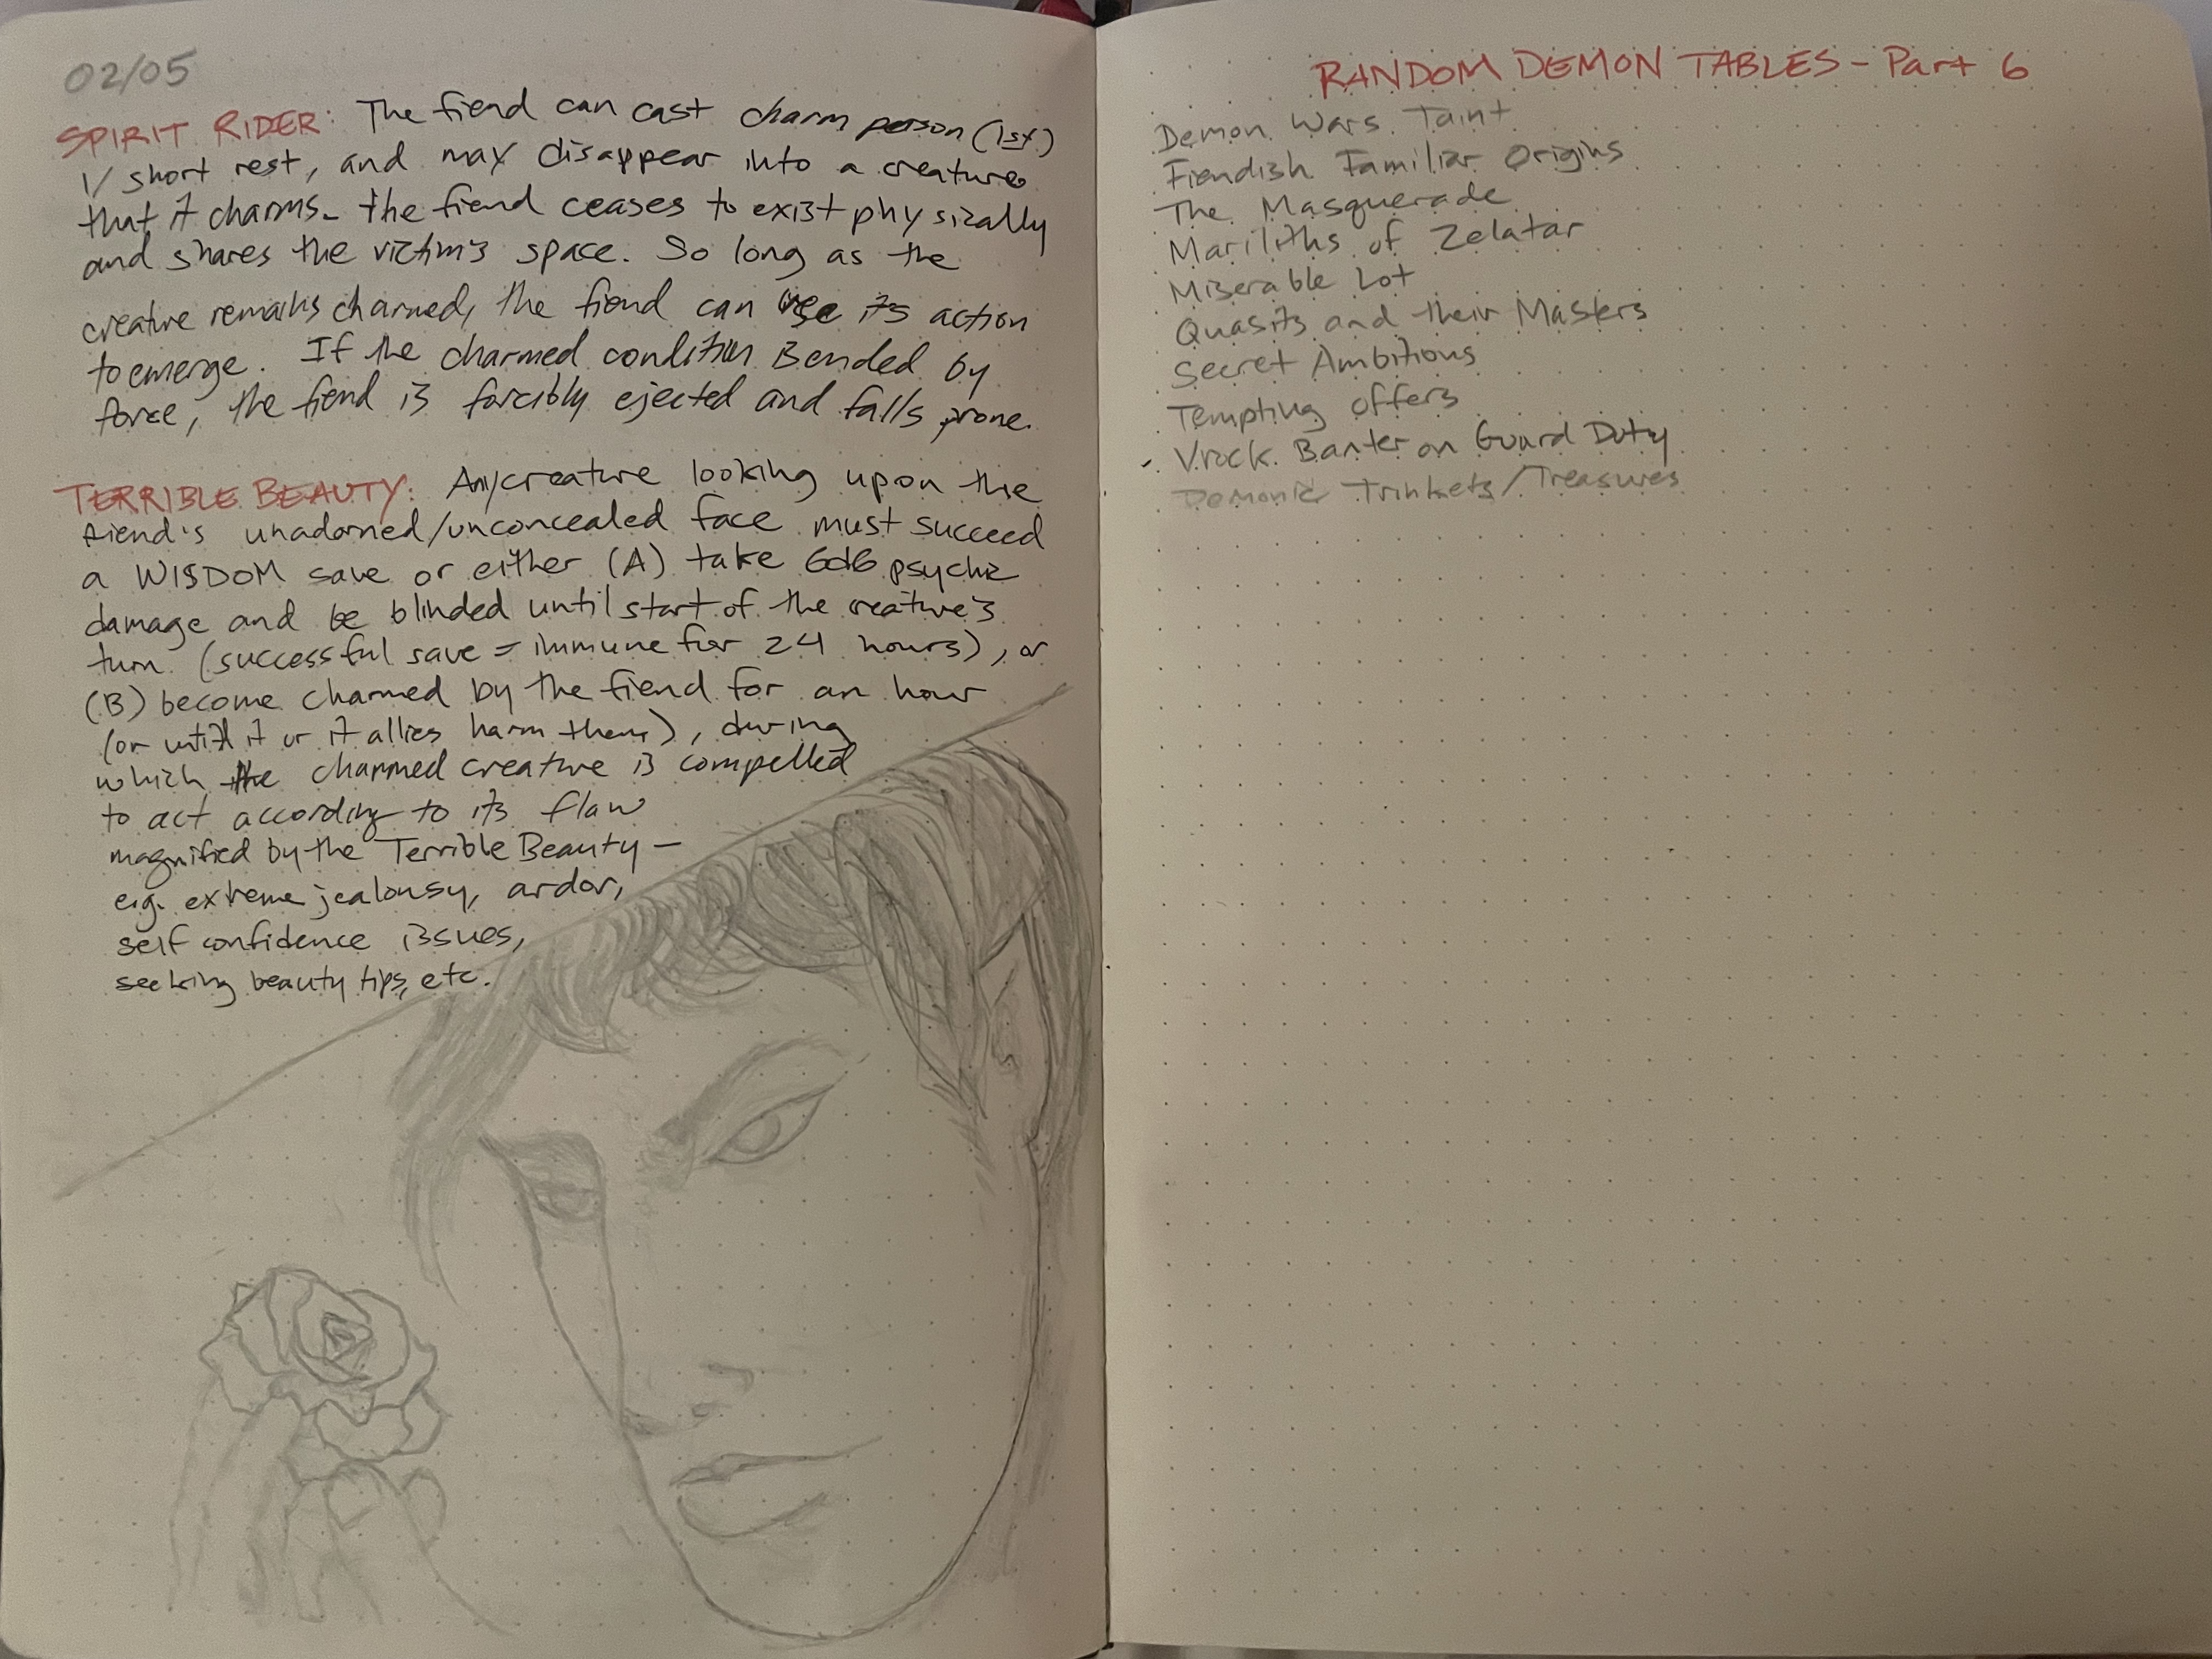 02/05
SPIRIT RIDER: The fiend can cast charm person (1st)
1/short rest, and may disappear into a creature
that it charms. The fiend ceases to exist physically
and shares the victim's space. So long as the
creature remains charmed, the fiend can use its action
to emerge. If the charmed condition is ended by
force, the fiend is forcibly ejected and falls prone.
TERRIBLE BEAUTY: Any creature looking upon the
fiend's unadorned/unconcealed face must succeed
a WISDOM save or either (A) take 6d6 psychic
damage and be blinded until start of the creature's
turn (successful save = immune for 24 hours), or
(B) become charmed by the fiend for an hour
(or until it or it allies harm them), during
which the charmed creature is compelled
to act according to its flaw
magnified by the Terrible Beauty —
e.g. extreme jealousy, ardor,
self confidence issues,
seeking beauty tips, etc.
RANDOM DEMON TABLES - Part 6
Demon Wars Taint
Fiendish Familiar Origins
The Masquerade
Mariliths of Zelatar
Miserable Lot
Quasits and their Masters
Secret Ambitions
Tempting Offers
Vrock Banter on Guard Duty
Demonic Trinkets/Treasures